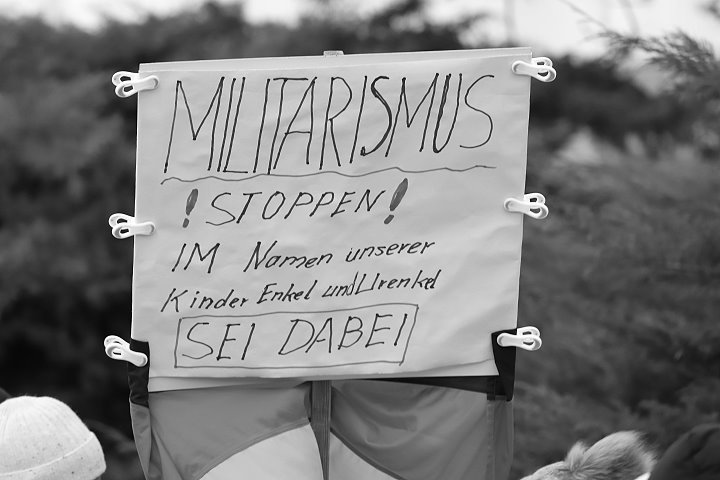 MILITARISMUS
! STOPPEN !
IM Namen unserer
Kinder Enkel und Urenkel
SEI DABEI